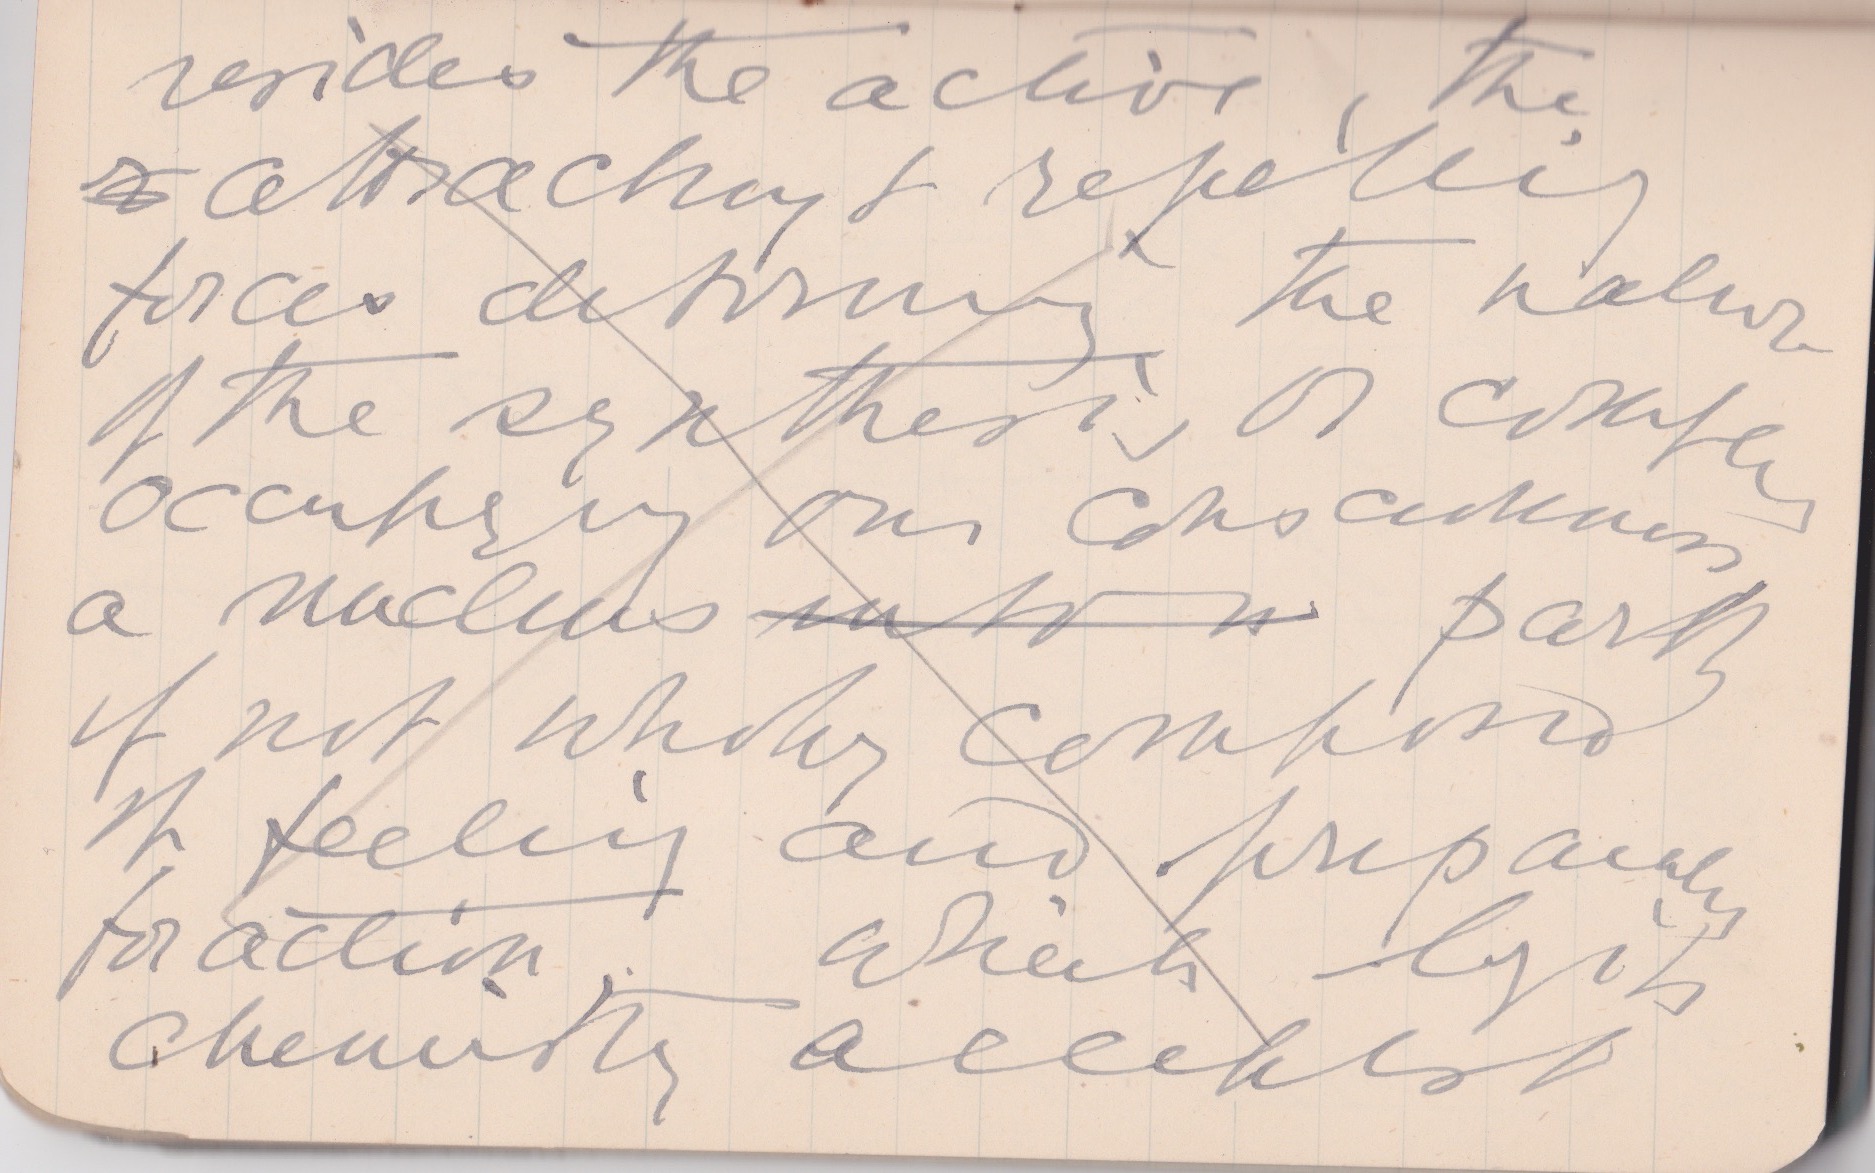 resides the active, the
attracting & repelling
forces determining the nature
of the synthesis, or complex
occupying our consciousness
a nucleus partly
if not wholly composed
of feeling and preparatory
for action. which by its
chemistry accepts